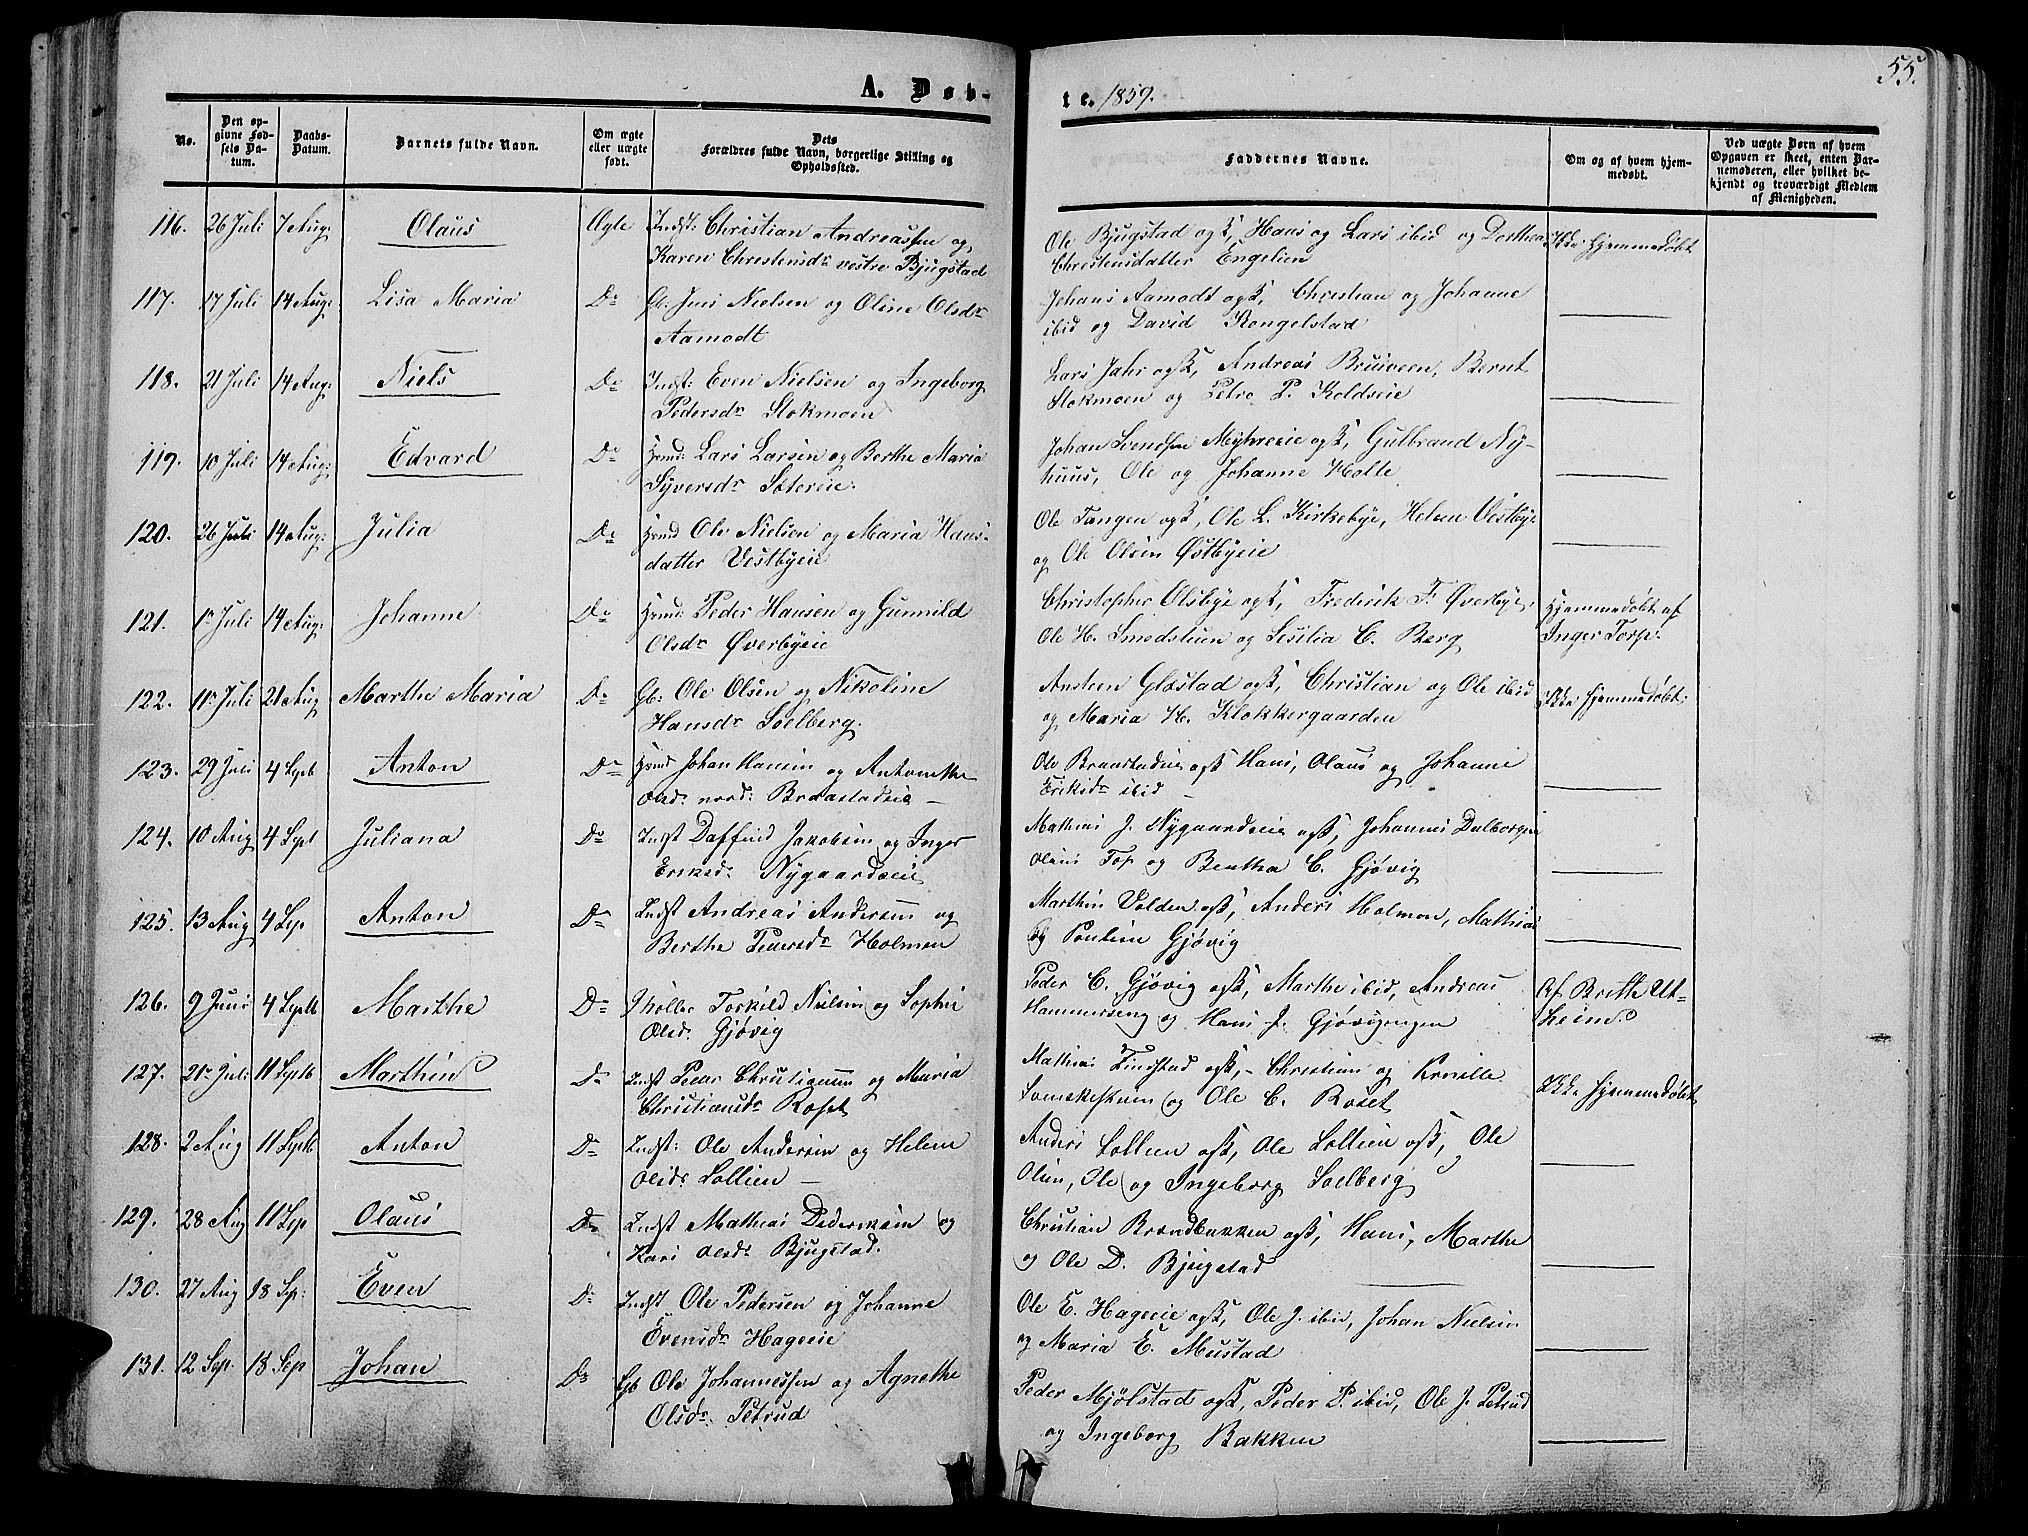 55.
A. Døb-
te. 1859.
No.
Den op-
givne Fød-
sels Da-
tum.
Daabs-
Datum.
Barnets fulde Navn.
Om ægte
eller uægte
født.
Dets
Forældres fulde Navn, borgerlige Stilling og
Opholdssted.
Faddernes Navne.
Om og af hvem hjem-
medøbt.
Ved uægte Børn af hvem
Opgaven er skeet, enten Bar-
nemoderen, eller hvilket be-
kjendt og troværdigt Medlem
af Menigheden.
116. 26 Juli 7 Aug: Olaus Ægte Indst: Christian Andreassen og
Karen Christensdr vestre Bjugstad
Ole Bjugstad og K, Hans og Lars ibid og Dorthea
Christensdatter Engelien
Ikke hjemmedøbt
117. 17 Juli 14 Aug: Lisa Maria Do Gb: Jens Nielsen og Oline Olsdr
Aamodt
Johans Aamodt og K, Christian og Johanne
ibid og David Kongelstad
118. 21 Juli 14 Aug: Niels Do Indst: Even Nielsen og Ingeborg
Pedersdr Stokmoen
Lars Jahr og K, Andreas Brusveen, Bernt
Stokmoen og Petro P. Koldseie
119. 10 Juli 14 Aug: Edvard Do Hmd: Lars Larsen og Berthe Maria
Syversdr Sotereie
Johan Svendsen Myhreeie og K, Gulbrand Ny-
huus, Ole og Johanne Holte
120. 26 Juli 14 Aug: Julia Do Hmd Ole Nielsen og Maria Hans-
datter Vestbyeie
Ole Tangen og K, Ole L. Kirkebye, Helene Vestbye
og Ole Olsen Østbyeie
121. 1r Juli 14 Aug: Johanne Do Hmd: Peder Hansen og Gunnild
Olsdr Øverbyeie
Christopher Olsbye og K, Frederik F. Øverbye,
Ole H. Smedstuen og Sesilia C. Berg
Hjemmedøbt af
Inger Torp.
122. 11r Juli 21 Aug Marthe Maria Do Gb: Ole Olsen og Nikoline
Hansdr Soelberg
Ansteen Glæstad og K, Christian og Ole ibid
og Maria H. Klokkergaarden
Ikke hjemmedøbt
123. 29 Juli 4 Sepb Anton Do Hmd Johan Hansen og Antonethe
Olsdr nord: Braastadeie
Ole Braastadeie og K Hans, Olaus og Johanne
Eriksdr ibid
124. 10 Aug 4 Sept Juliana Do Indst Daffind Jakobsen og Inger
Eriksdr Nygaardseie
Mathias J. Nygaardseie og K, Johannes Dalborgen
Olsens Top og Benthe C. Gjøvig
125. 13 Aug 4 Sep Anton Do Indst Andreas Andersen og
Berthe Pedersdr Holmen
Marthin Volden og K, Anders Holmen, Mathias
og Pouline Gjøvig
126. 9 Juni 4 Septb Marthe Do Møller Torkild Nielsen og Sophie
Olsdr Gjøvig
Peder C. Gjøvig og K, Marthe ibid, Andreas
Hammerseng og Hans J. Gjøvigengen
Af Brithe Ut-
heim
127. 21r Juli 11 Septb Marthin Do Indst Peder Christiansen og Maria
Christiansdr Roset
Mathias Finstad og K, Christian og Pernille
og Ole C. Roset
Ikke hjemmedøbt
128. 2 Aug 11 Septb Anton Do Indst: Ole Andersen og Helene
Olsdr Lollien
Anders Lollien og K, Ole Lollien og K, Ole
Olsen, Ole og Ingeborg Soelberg
129. 28 Aug 11 Sep Olaus Do Indst Mathias Dideriksen og
Kari Olsdr Bjugstad.
Christian Brændbakken og K, Hans, Marthe
og Ole D. Bjugstad
130. 27 Aug 18 Sep: Even Do Indst Ole Pedersen og Johanne
Evensdr Hageeie
Ole E. Hageeie og K, Ole J. ibid, Johan Nielsen
og Maria E. Mustad
131. 12 Sep. 18 Sep Johan Do Gb Ole Johannessen og Agnethe
Olsdr Petrud
Peder Mjølstad og K, Peder P. ibid, Ole J. Petrud
og Ingeborg Bakken